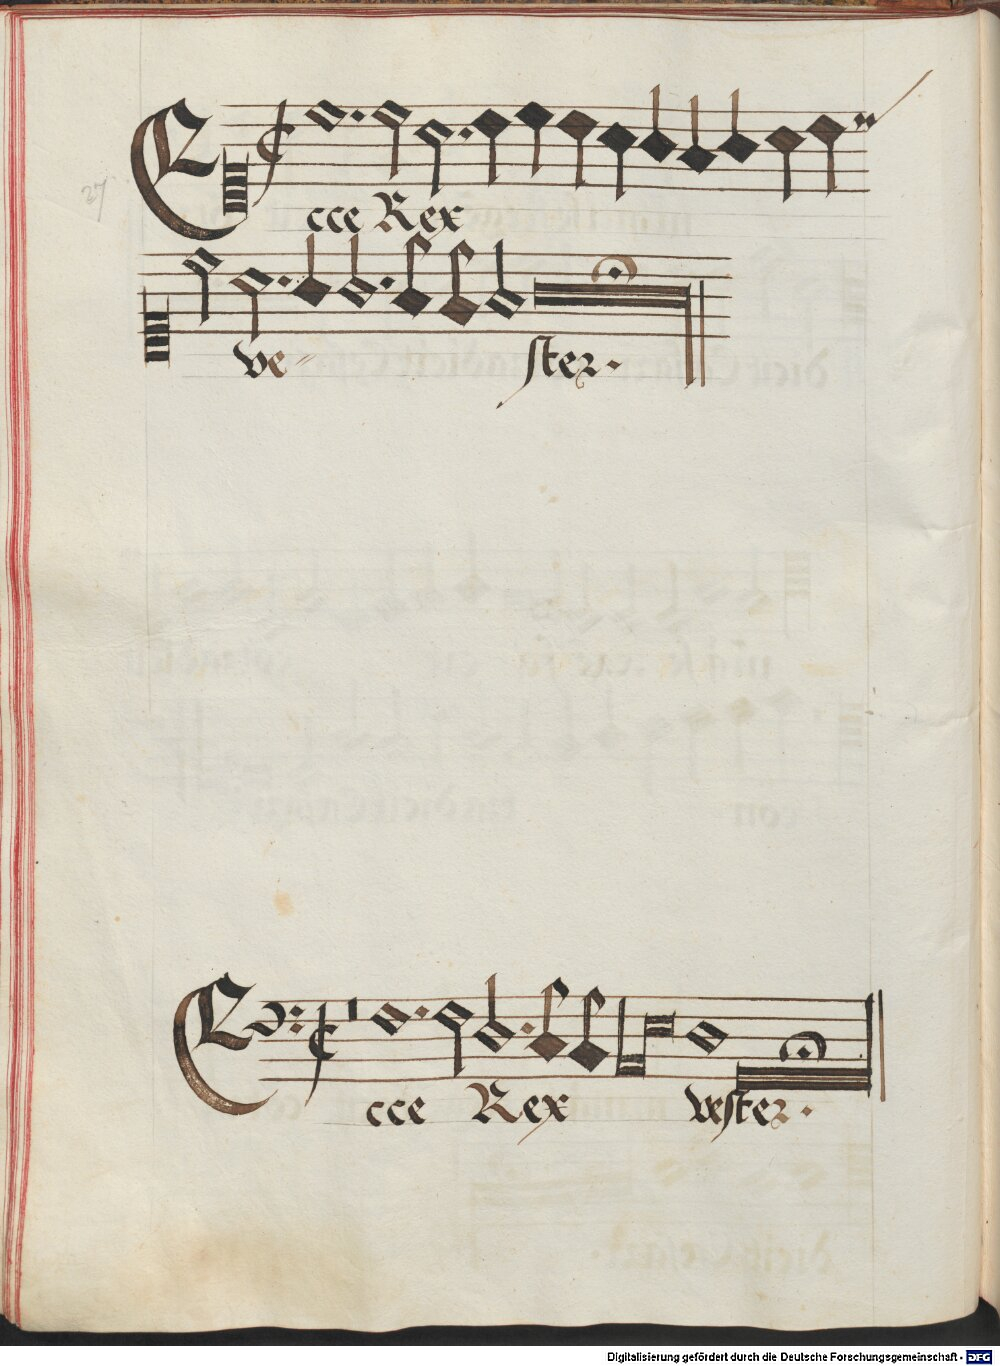 27
Ecce Rex
ve- ster.
Ecce Rex vester.
Digitalisierung gefördert durch die Deutsche Forschungsgemeinschaft - DFG